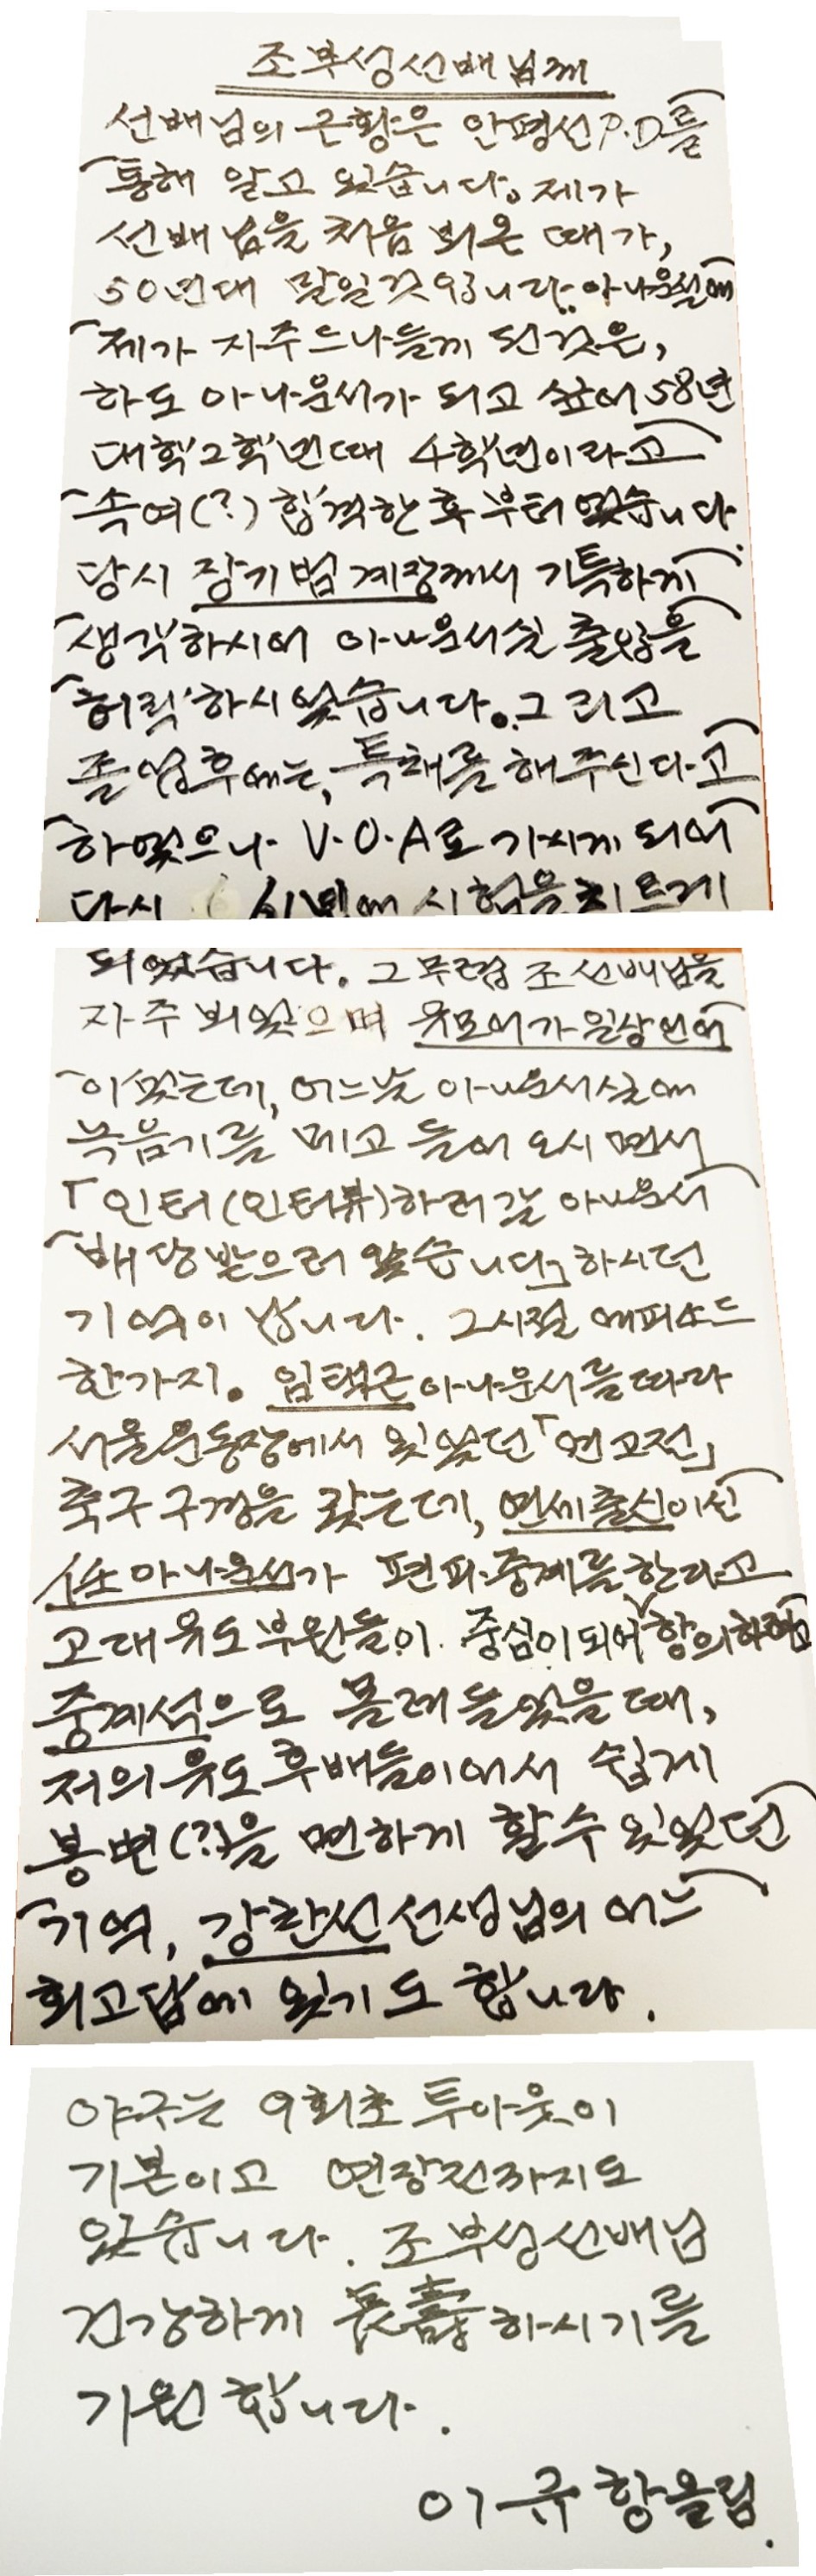 조부성선배님께
선배님의 근황은 안평선P.D를
통해 알고 있습니다. 제가
선배님을 처음 뵈온 때가,
50년대 말일것입니다. 아나운실에
제가 자주 드나들게 된것은,
하도 아나운서가 되고 싶어 58년
대학2학년때 4학년이라고
속여(?) 합격한 후 부터였습니다
당시 장기범계장께서 기특하게
생각하시어 아나운서실 출입을
허락하시었습니다. 그리고
졸업후에는, 특채를 해주신다고
하였으나 V.O.A로 가시게 되어
다시 61년에 시험을 치르게
되었습니다. 그무렵 조선배님을
자주 뵈었으며 유모어가 일상언어
이었는데, 어느날 아나운서실에
녹음기를 메고 들어 오시면서
「인터(인터뷰)하러갈 아나운서
배당받으러 왔습니다」하시던
기억이 납니다. 그시절 에피소드
한가지. 임택근아나운서를 따라
서울운동장에서 있었던「연고전」
축구구경을 갔는데, 연세출신이신
任아나운서가 편파중계를 한다고
고대유도부원들이 중심이되어 항의하려고
중계석으로 몰려들었을때,
저의 유도후배들이어서 쉽게
봉변(?)을 면하게 할수 있었던
기억, 강찬선선생님의 어느
회고담에 있기도 합니다.
야구는 9회초 투아웃이
기본이고 연장전까지도
있습니다. 조부성선배님
건강하게 長壽하시기를
기원합니다.
이규항올림.